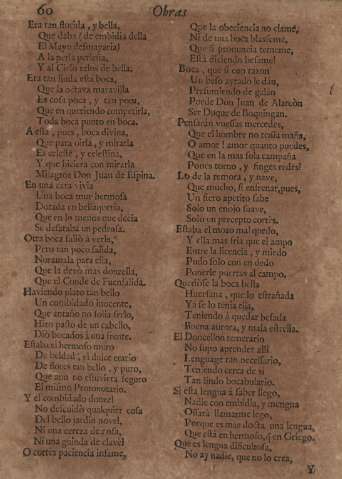 60 Obras
Era tan florida, y bella,
Que daba (de embidia della
El Mayo desmayaria)
A la perla perleria,
Y al Cielo zelos de bella.
Era tan linda esta boca,
Que la octava maravilla
Es cosa poca, y tan poca,
Que en queriendo competirla,
Toda boca punto en boca.
A esta, pues, boca divina,
Que para oirla, y mirarla
Es celeste, y celestina,
Y que hiciera con mirarla
Milagros Don Juan de Espina.
En una cara vivia
Una boca muy hermosa
Dotada en
Que en lo menos que decia
Se desataba un
Otra boca saliò à verla,
Pero tan poco salida,
Noramala para ella,
Que la dexò mas doncella,
Que el Conde de Fuensalida.
Haviendo plato tan bello
Un combidado inocente,
Que antaño no solia serlo,
Hizo pasto de un cabello,
Diò bocados à una frente.
Estaba el hermoso muro
De beldad, el dulce erario
De flores tan bello, y puro,
Que aun no estuviera seguro
El mismo Protonotario.
Y el combidado donzel
No descuidò qualquier cosa
Del bello jardin novel,
Ni una cereza de rosa,
Ni una guinda de clavel
O cortes paciencia infame,
Que la obediencia no clame,
Ni de una boca blasfeme,
Que si pronuncia
Està diciendo besame!
Boca, que si con razon
Un beso ayrado le dàn,
Presumiendo de galàn
Puede Don Juan de Alarcòn
Ser Duque de Boquingan.
Pensaràn vuestras mercedes,
Que el hombre no tenia maña,
O amor! amor quanto puedes,
Que en la mas sola campaña
Pones torno, y finges redes!
Lo de la remora, y nave,
Que mucho, si enfrenar, pues,
Un fiero apetito sabe
Solo un enojo suave,
Solo un precepto cortès.
Estaba el mozo mal quedo,
Y ella mas fria que el ampo
Entre la licencia, y miedo
Pudo solo con un dedo
Ponerle puertas al campo.
Quexòse la boca bella
Huerfana, que lo estrañada
Ya se lo tenia ella,
Teniendo à quedar besada
Buena aurora, y mala estrella.
El Doncellon temerario
No supo aprender alli
Lenguage tan necessario,
Teniendo cerca de sì
Tan lindo bocabulario.
Si esta lengua à saber llego,
Nadie con embidia, y mengua
Ossarà llamarme lego,
Porque es mas docta, una lengua,
Que està en hermoso, q̃ en Griego.
Que es lengua dificultosa,
No ay nadie, que no lo crea,
Y